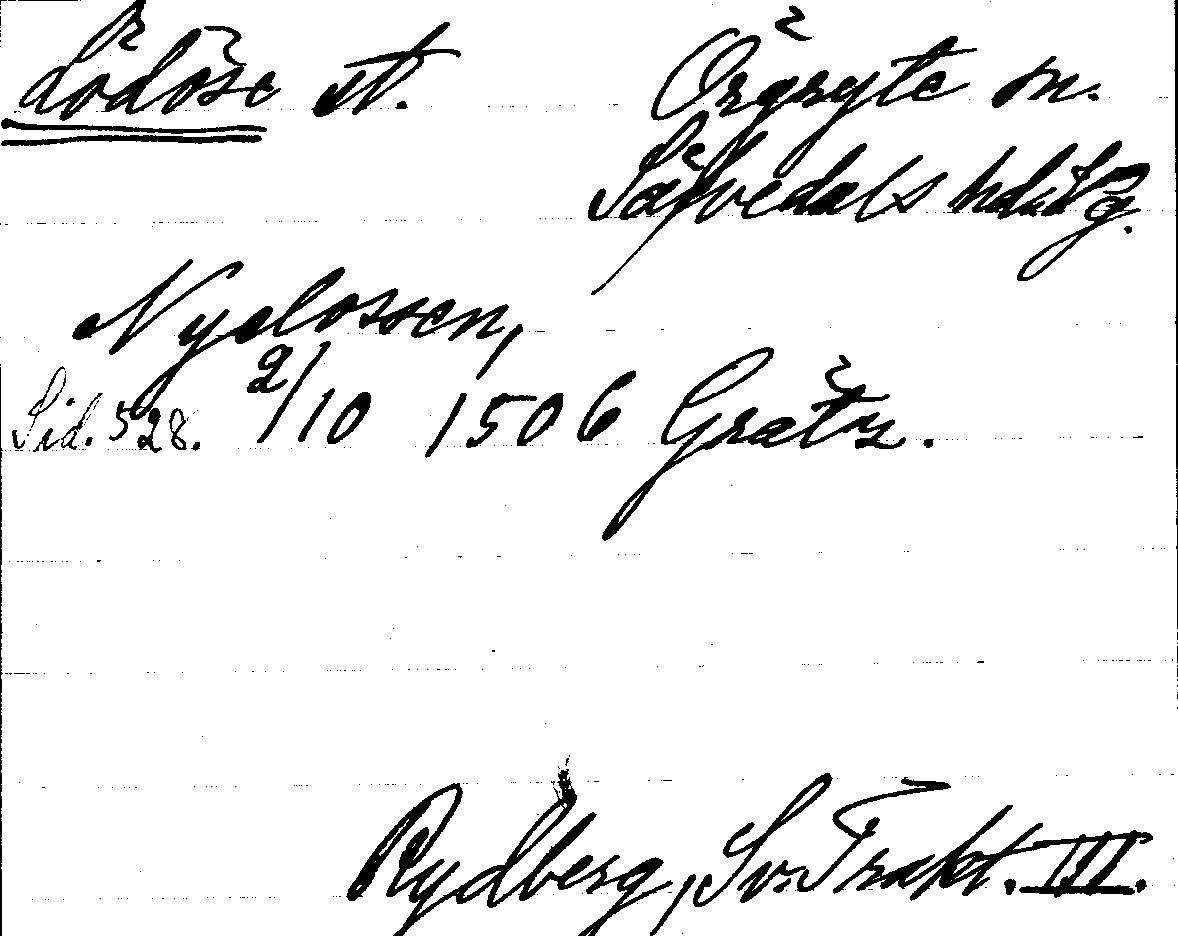 Lödöse st. Örgryte sn.
Sävedals hd Vg.
Nyelossen,
Sid. 528. 2/10 1506 Grätz.
Rydberg, Sv. Trakt. III.